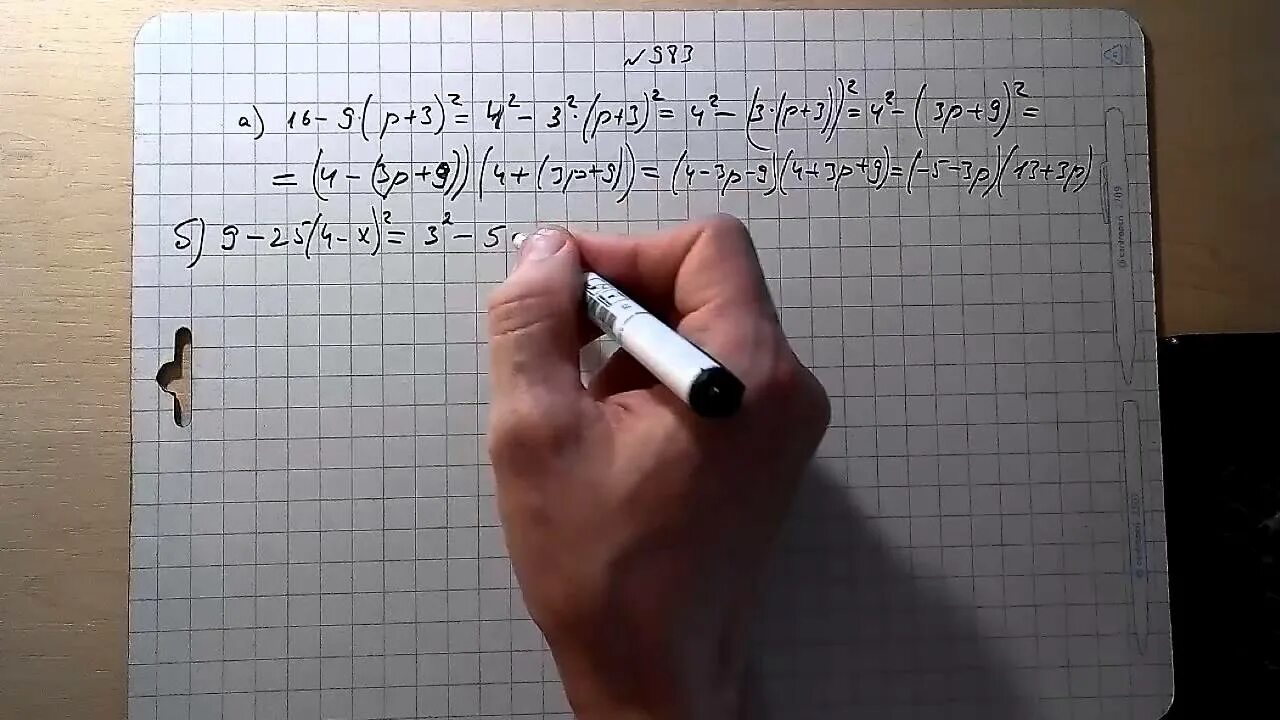 № 983
а) 16 - 9(p+3)² = 4² - 3²·(p+3)² = 4² - (3·(p+3))² = 4² - (3p+9)² =
= (4 - (3p+9))(4 + (3p+9)) = (4-3p-9)(4+3p+9) = (-5-3p)(13+3p)
б) 9 - 25(4-x)² = 3² - 5